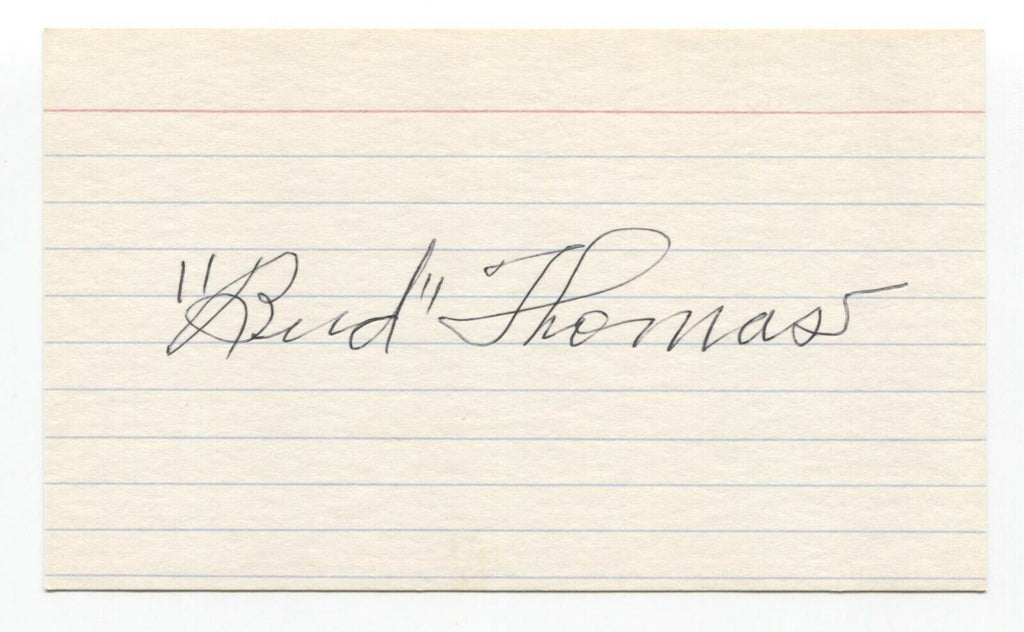 "Bud" Thomas